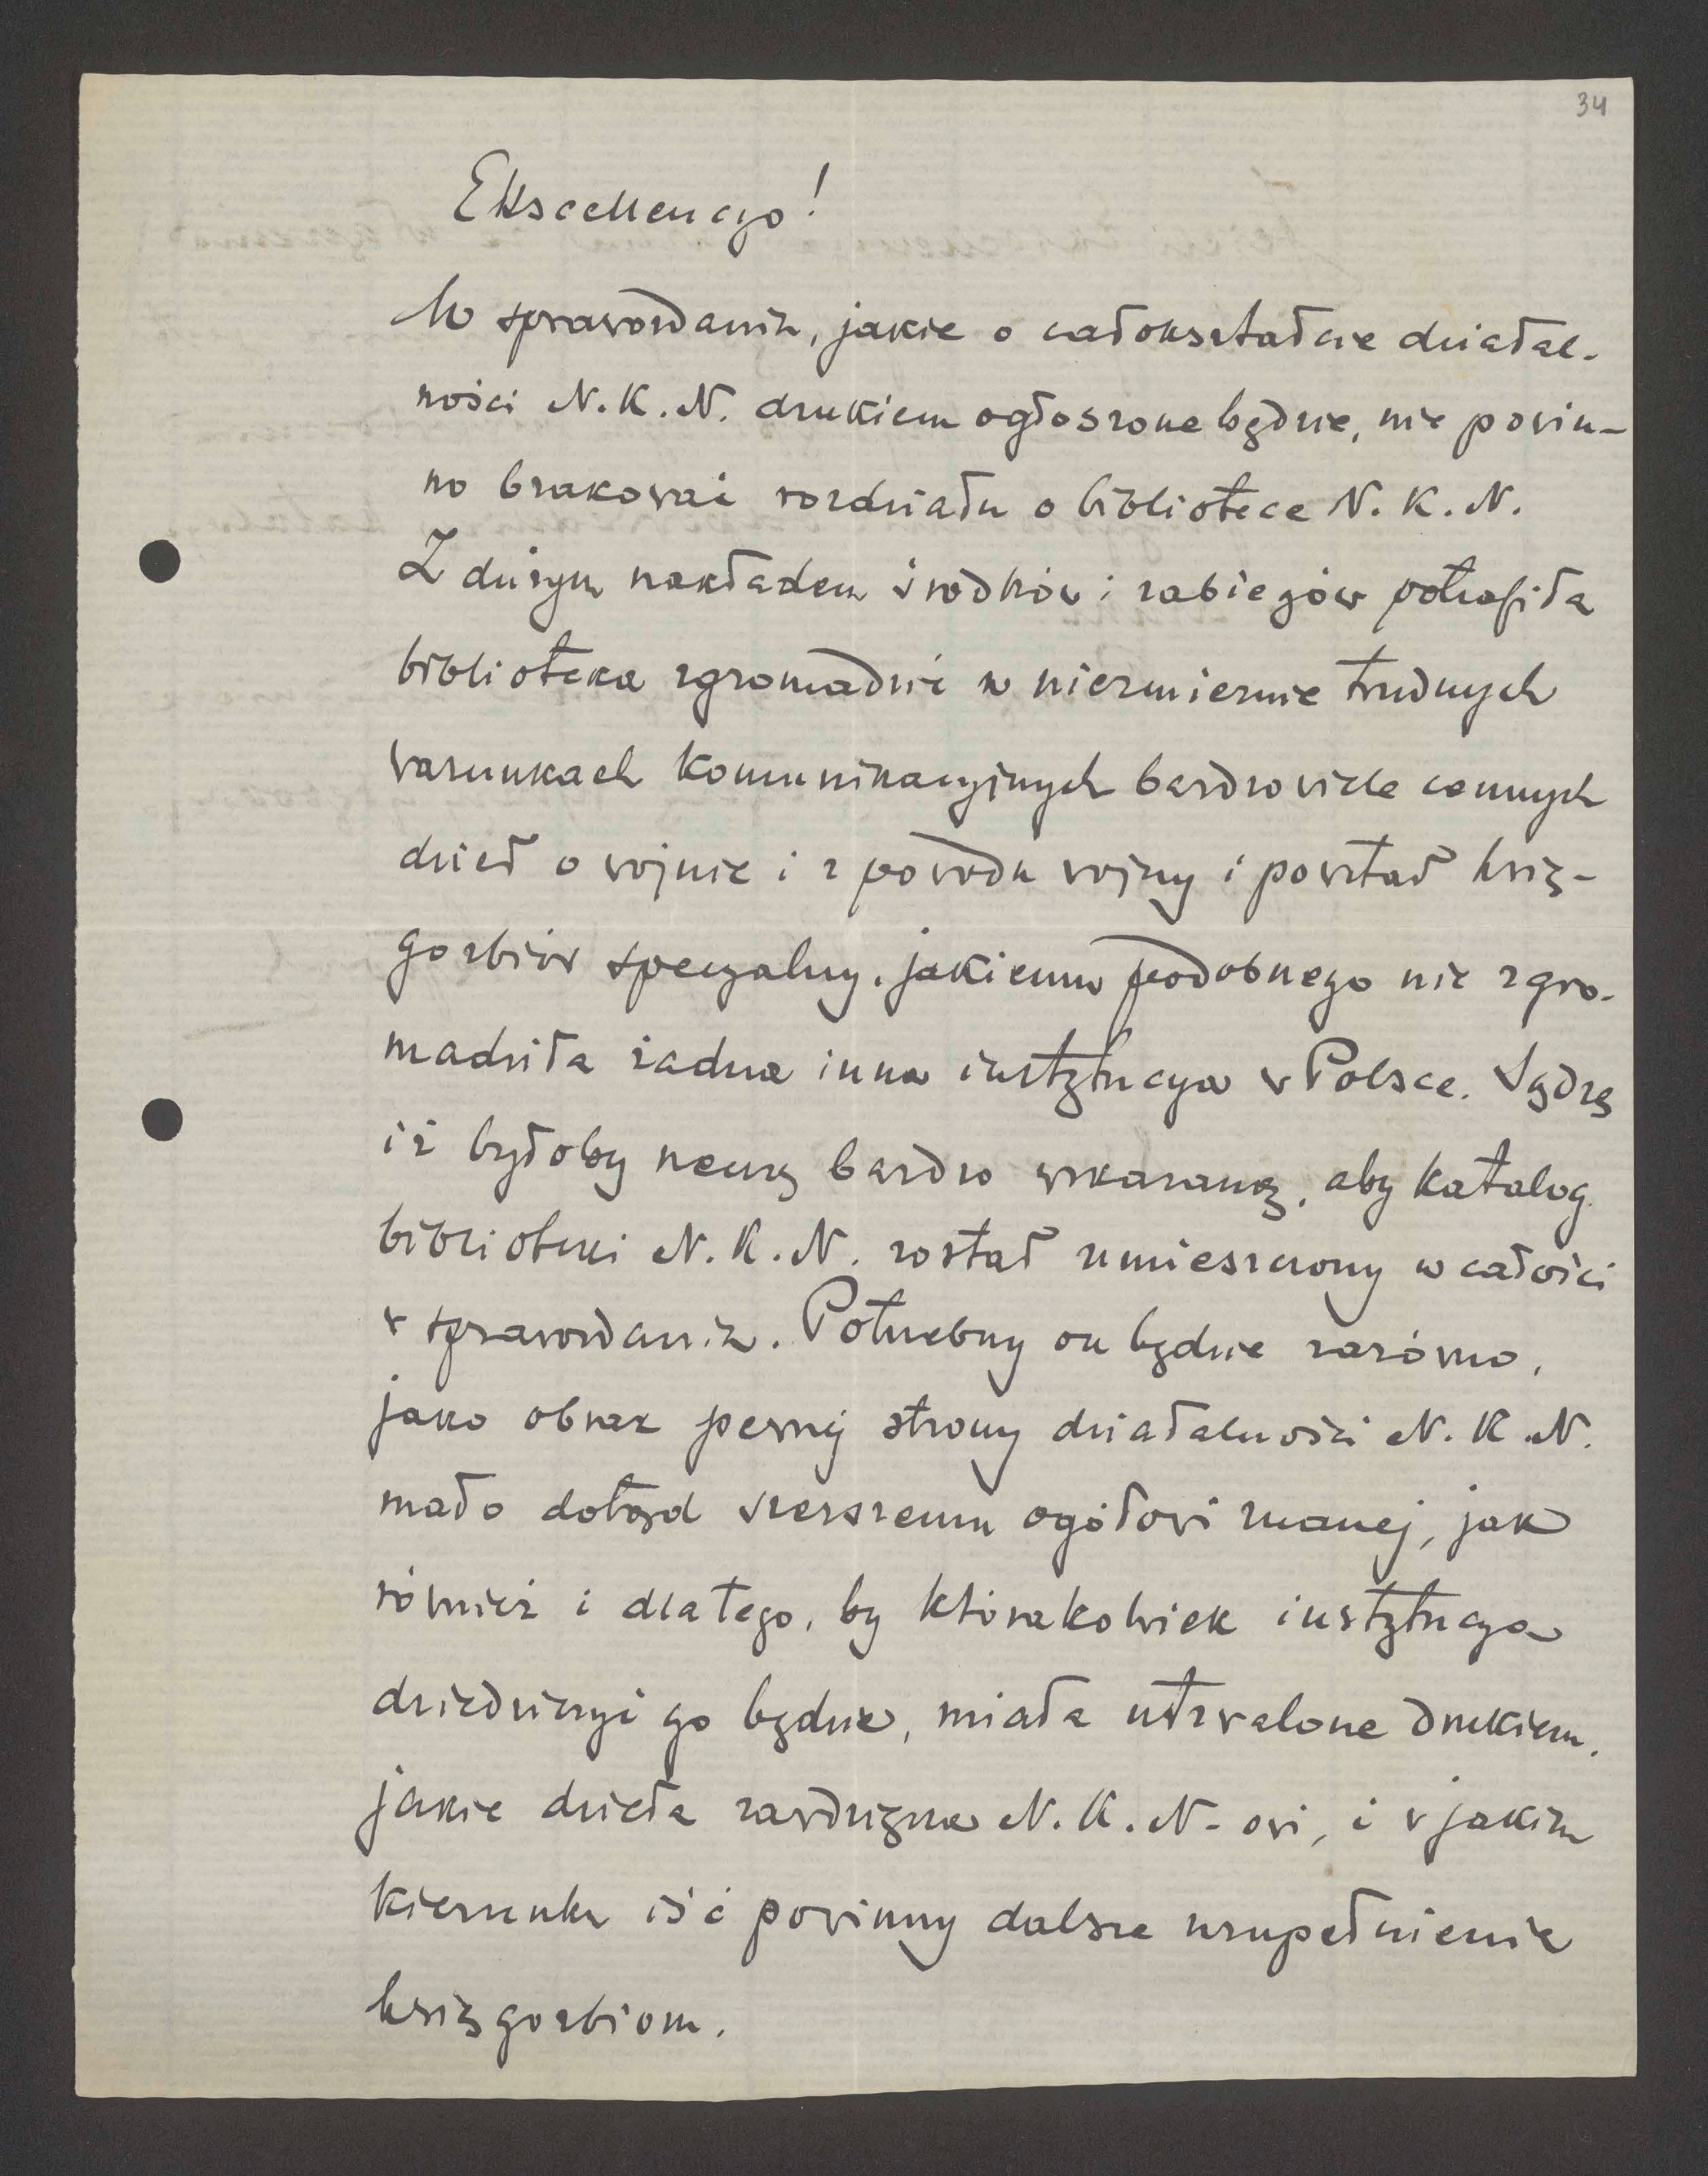 34
Ekscellencyo!
W sprawozdaniu, jakie o całokształcie działal-
ności N.K.N. drukiem ogłoszone będzie, nie powin-
no brakować rozdziału o bibliotece N.K.N.
Z dużym nakładem środków i zabiegów potrafiła
biblioteka zgromadzić w niezmiernie trudnych
warunkach komunikacyjnych bardzo wiele cennych
dzieł o wojnie i z powodu wojny i powstał księ-
gozbiór specyalny, jakiemu podobnego nie zgro-
madziła żadna inna instytucya w Polsce. Sądzę
iż byłoby rzeczą bardzo wskazaną, aby katalog
biblioteki N.K.N. został umieszczony w całości
w sprawozdaniu. Potrzebny on będzie zarówno,
jako obraz pewnej strony działalności N.K.N.
mało dotąd szerszemu ogółowi znanej, jak
również i dlatego, by którakolwiek instytucya
dziedziczyć go będzie, miała utrwalone drukiem,
jakie dzieła zawdzięcza N.K.N-owi, i w jakim
kierunku iść powinny dalsze uzupełnienia
księgozbiorn.